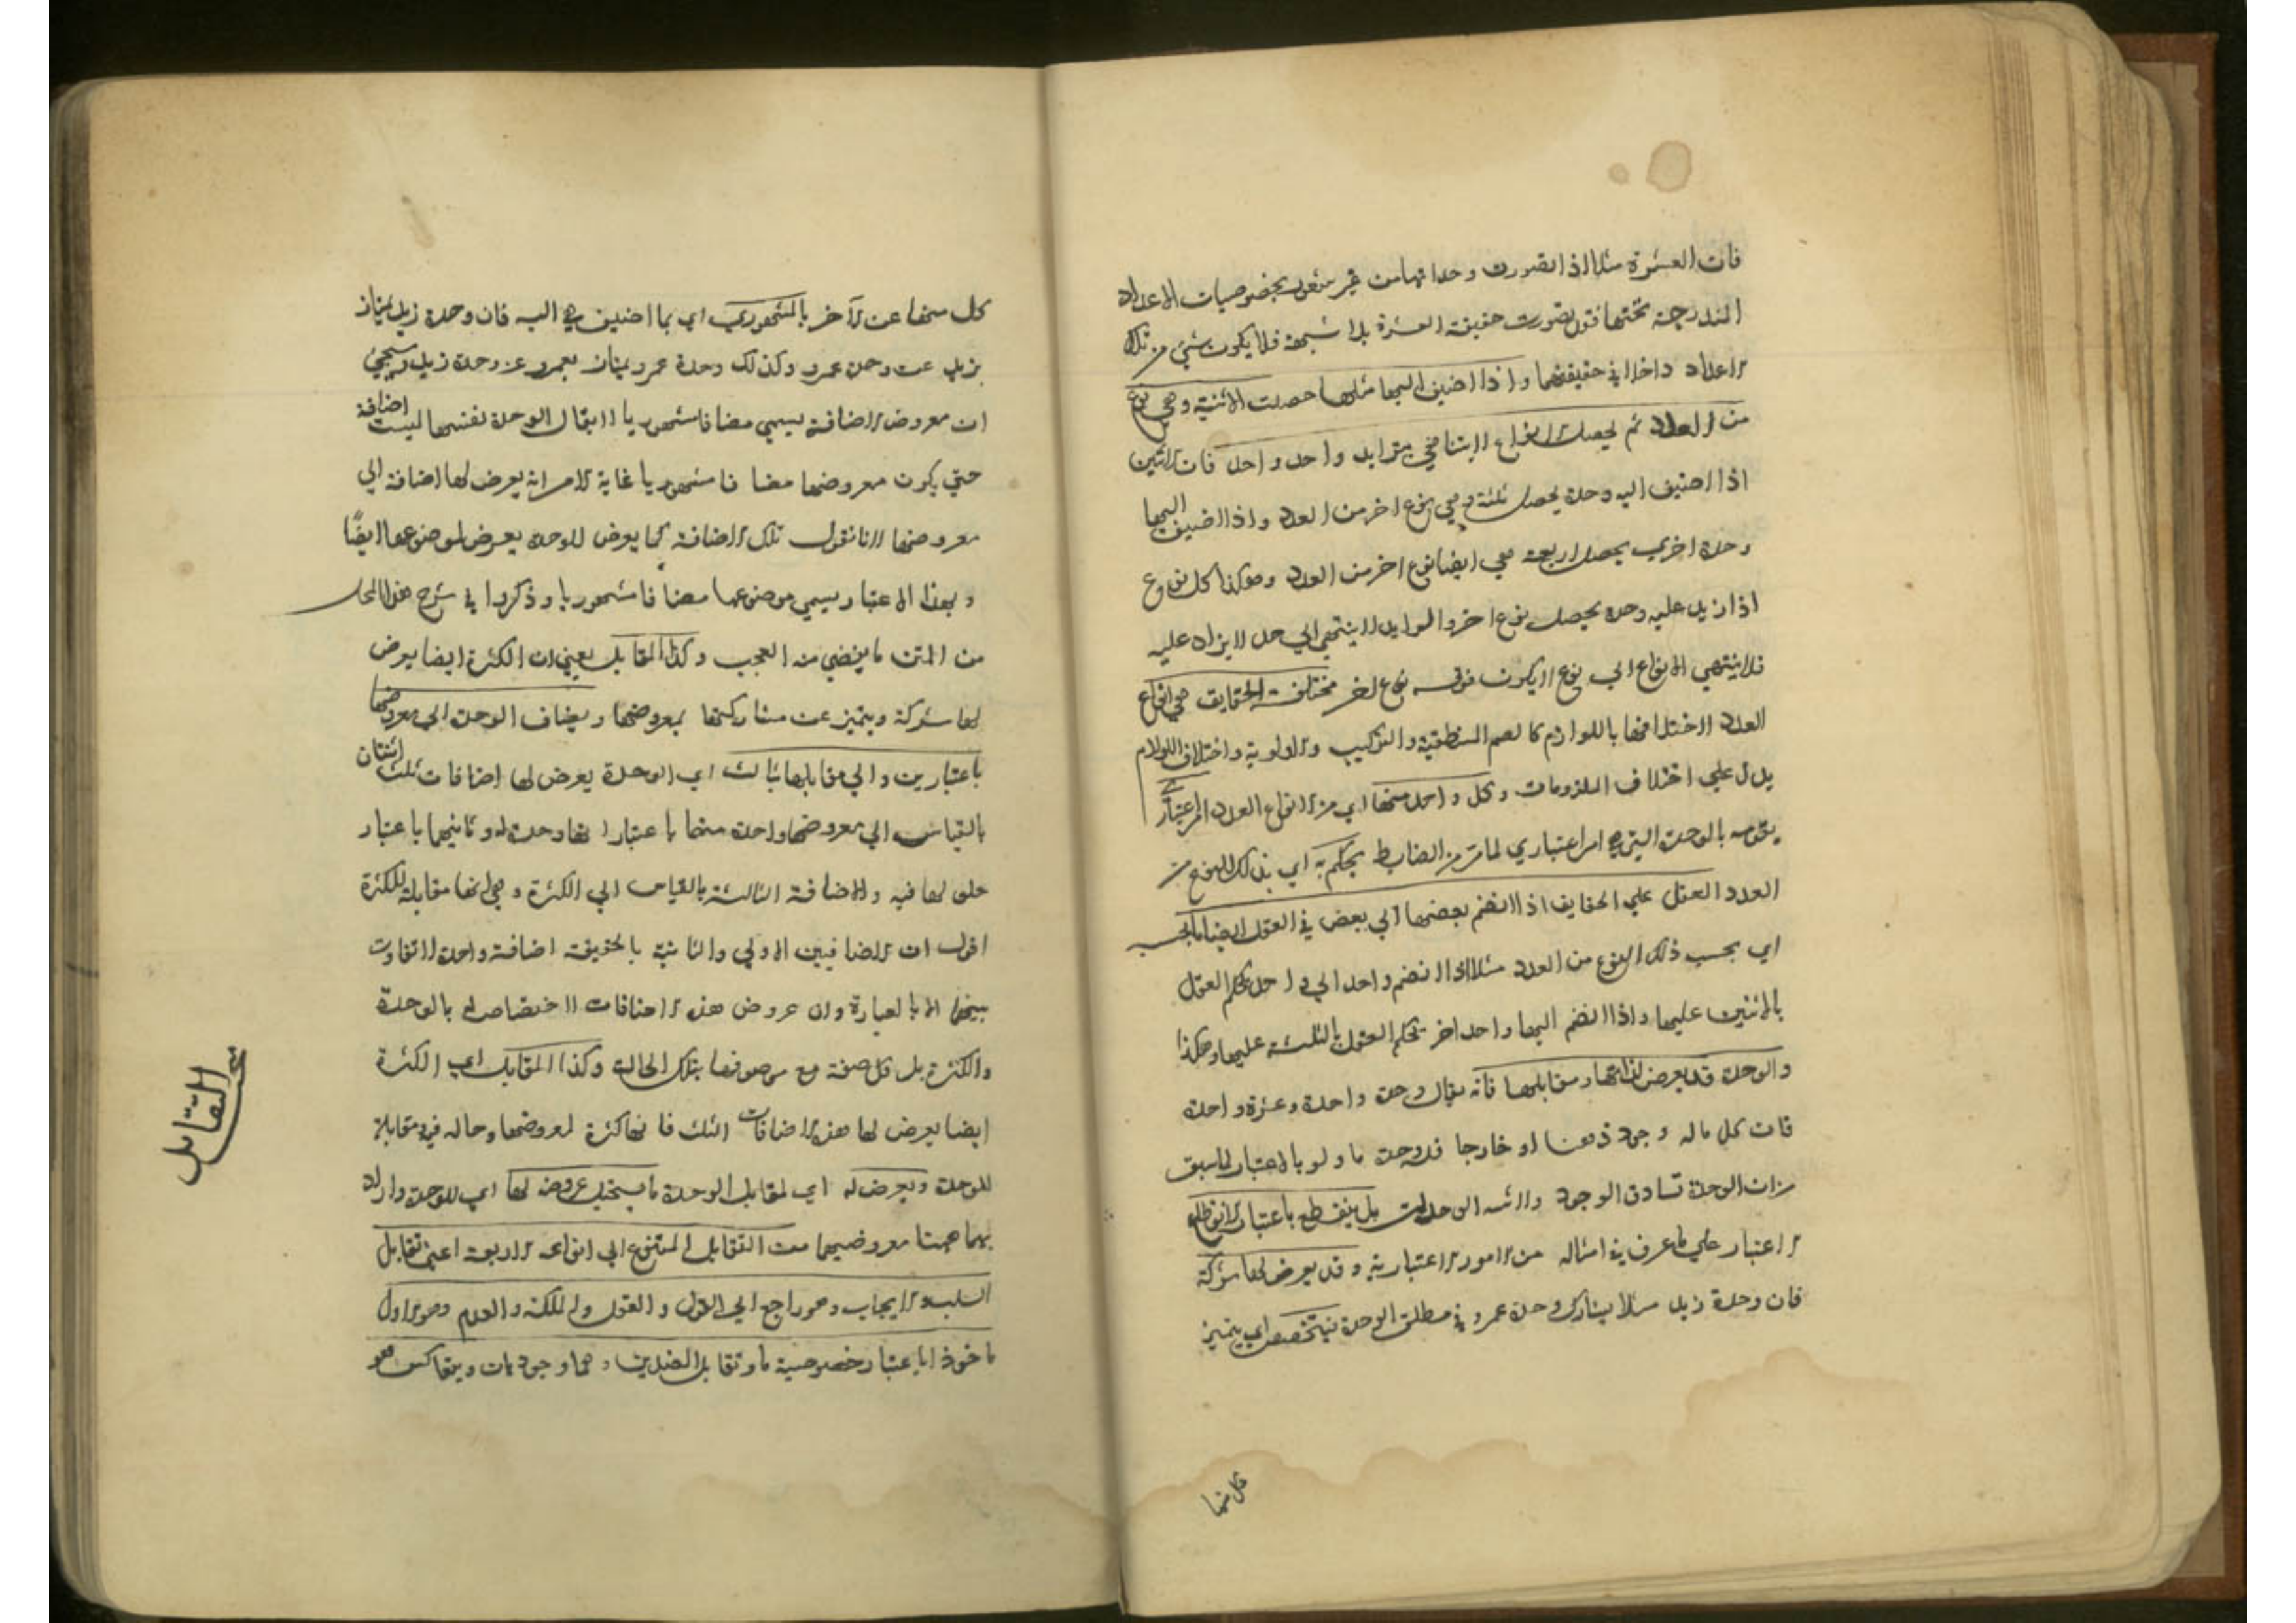 فان العشرة مثلا اذا تصورت وحداتها من غير شعور بخصوصيات الاعداد
المندرجة تحتها فقد تصورت حقيقة العشرة بلا شبهة فلا يكون شئ من تلك
الاعداد داخلا في حقيقتها واذا اضيف اليها مثلها حصلت الاثنينية وهي نوع
من العدد ثم يحصل انواع لا يتناهي بتزايد واحد واحد فان الاثنين
اذا اضيف اليه وحدة يحصل ثلثة وهي نوع اخر من العدد واذا اضيف اليها
وحدة اخري يحصل اربعة هي ايضا نوع اخر من العدد وهكذا كل نوع
اذا زيد عليه وحدة يحصل نوع اخر والتزايد لا ينتهي الي حد لا يزاد عليه
فلا ينتهي الانواع الي نوع لا يكون فوقه نوع اخر مختلفة الحقايق هي انواع
العدد لاختلافها باللوازم كالصمم والمنطقية والتركيب والاولية واختلاف اللوازم
يدل علي اختلاف الملزومات وكل واحد منها اي من انواع العدد امر اعتباري
يقومه بالوحدة التي هي امر اعتباري لما مر من الضابط يحكم به اي بذلك النوع من
العدد العقل علي الحقايق اذا انضم بعضها الي بعض في العقل انضماما بحسبه
اي بحسب ذلك النوع من العدد مثلا اذا انضم واحد الي واحد يحكم العقل
بالاثنين عليهما واذا انضم اليهما واحد اخر يحكم العقل بالثلثة عليها وهكذا
والوحدة قد يعرض لذاتها ومقابلها فانه يقال وحدة واحدة وعشرة واحدة
فان كل ما له وجود ذهنا او خارجا فله وحدة ما ولو بالاعتبار لما سبق
من ان الوحدة تساوق الوجود ولا تسلسل الوحدات بل ينقطع بانقطاع
الاعتبار علي ما عرف في امثاله من الامور الاعتبارية وقد يعرض لها شركة
فان وحدة زيد مثلا يشارك وحدة عمرو في مطلق الوحدة فيتخصص اي يتميز
كل منها
كل منها عن الاخر بالمشهوري اي بما اضيف هي اليه فان وحدة زيد يمتاز
بزيد عن وحدة عمرو وكذلك وحدة عمرو يمتاز بعمرو عن وحدة زيد وسيجئ
ان معروض الاضافة يسمي مضافا مشهوريا لا يقال الوحدة نفسها ليست اضافة
حتي يكون معروضها مضافا مشهوريا غاية الامر انه يعرض لها اضافة الي
معروضها لانا نقول تلك الاضافة كما يعرض للوحدة يعرض لموضوعها ايضا
وبهذا الاعتبار يسمي موضوعها مضافا مشهوريا وذكروا في شرح هذا المحل
من المتن ما يقضي منه العجب وكذا المقابل يعني ان الكثرة ايضا يعرض
لها شركة ويتميز عن مشاركتها بمعروضها ويضاف الوحدة الي معروضها
باعتبارين والي مقابلها بثالث اي الوحدة يعرض لها اضافات ثلث اثنتان
بالقياس الي معروضها واحدة منهما باعتبار انها وحدة له وثانيهما باعتبار
حلولها فيه والاضافة الثالثة بالقياس الي الكثرة وهي انها مقابلة للكثرة
اقول ان المضافين الاولي والثانية بالحقيقة اضافة واحدة لا تفاوت
بينهما الا بالعبارة وان عروض هذه الاضافات لا اختصاص له بالوحدة
والكثرة بل كل صفة مع موصوفها بتلك الحالة وكذا المقابل اي الكثرة
ايضا يعرض لها هذه الاضافات الثلث فانها كثرة لمعروضها وحاله فيه ومقابلة
للوحدة ويعرض له اي لمقابل الوحدة ما يستحيل عروضه لها اي للوحدة واراد
بهما ههنا معروضيهما من التقابل المتنوع الي انواعه الاربعة اعني تقابل
السلب والايجاب وهو راجع الي القول والعقد والملكة والعدم وهو الاول
ماخوذا باعتبار خصوصية ما وتقابل الضدين وهما وجوديان ويتعاكس هو
التقابل